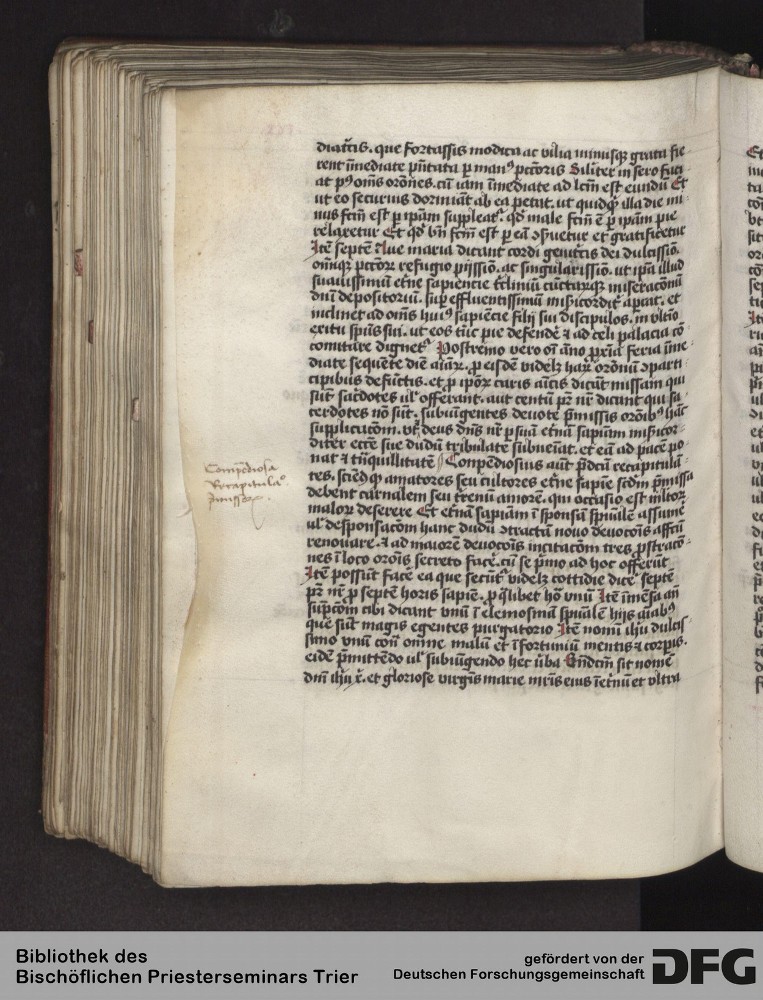 diat͛cis. que fortassis modica ac vilia minusq; grata fie
rent īmediate p̄ntata ꝑ manꝰ pctōris Silīter in sero faci
at pꝰ om̄s orōnes. cū iam īmediate ad lcm̄ est eundū Et
ut eo securius dormiāt ab ea petat. ut quidq; illa die mi
nus fcm̄ est ꝑ ip̄am suppleat᷑. qd̓ male fcm̄ ē ꝑ ip̄am pie
relaxetur Et qd̓ bn̄ fcm̄ est ꝑ eā ɔẜuetur et gratificetur
Itē septē Aue maria dicant cordi genit͛cis dei dulcissīo.
om̄iq; pctōꝝ refugio pijssīo. ac singularissīo. ut ip̄a illud
suauissimū et̓ne sapiencie t͛clinīū cūctarūq; miseracōnū
dn̄i depositoriū. suꝑ effluentissimū mīẜicordit͛ aꝑiat. et
inclinet ad om̄s huiꝰ sapiēcie filij sui discipulos. in vltīo
exitu sp̄us sui. ut eos tūc pie defendē ⁊ ad celi palacia cō
comitare dignet᷑ Postremo vero oī āno ꝓxīa feria īme
diate sequēte diē aīaꝝ. ꝓ eisdē videlꝫ haꝝ orōnū ɔparti
cipibus defūctis. et ꝓ ip̄oꝝ caris aīcis dicāt missam qui
sūt sac̓dotes ul̓ offerant. aut centū pr̄ nr̄ dicant qui sa
cerdotes nō sūt. subiūgentes deuote p̄missis orōibꝰ hāc
supplicacōm. vt deus dn̄s nr̄ ꝑ suā et̓nā sapiam mīẜicor
diter ecc̄e sue dudū tribulate subueīat. et eā ad pacē po
nat ⁊ t͛nquillitatē Conpēdiosius aūt p̄dcā recapitulā
tes. sciēdū ꝙ amatores seu cultores et̓ne sapīe scdm̄ p̄missa
debent carnalem seu terenū amorē. qui occasio est mltoꝝ
maloꝝ deserere Et et̓nā sapiam ī sponsā sp̄ualē assumē
ul̓ desponsacōm hanc dudū ɔtractā nouo deuocōis affcū
renouare. ⁊ ad maiorē deuocōis incitacōm tres ꝓstracō
nes ī loco orōis secreto facē. cū se p̄mo ad hoc offerūt
Itē possūt facē ea que secūt᷑ videlꝫ cottidie dicē septē
pr̄ nr̄ ꝓ septē horis sapiē. ꝓ q̄libet ho̓ vnū Itē ī mēsa āñ
sūpcōm cibi dicant vnū ī elemosinā sp̄ualē hijs aīabꝰ
que sūt magis egentes purgatorio Itē nomī ih̄u dulcis
simo vnū cont͛ omne malū et īfortuniū mentis ⁊ corpis.
eidē p̄mittēdo ul̓ subiūgendo hec v̓ba Bn̄dcm̄ sit nomē
dn̄i ih̄u x̄. et gloriose virgīs marie mr̄is eius īet̓nū et vltra
Compēdiosa
Recapitulaº
p̄missoꝝ.
Bibliothek des
Bischöflichen Priesterseminars Trier
gefördert von der
Deutschen Forschungsgemeinschaft
DFG